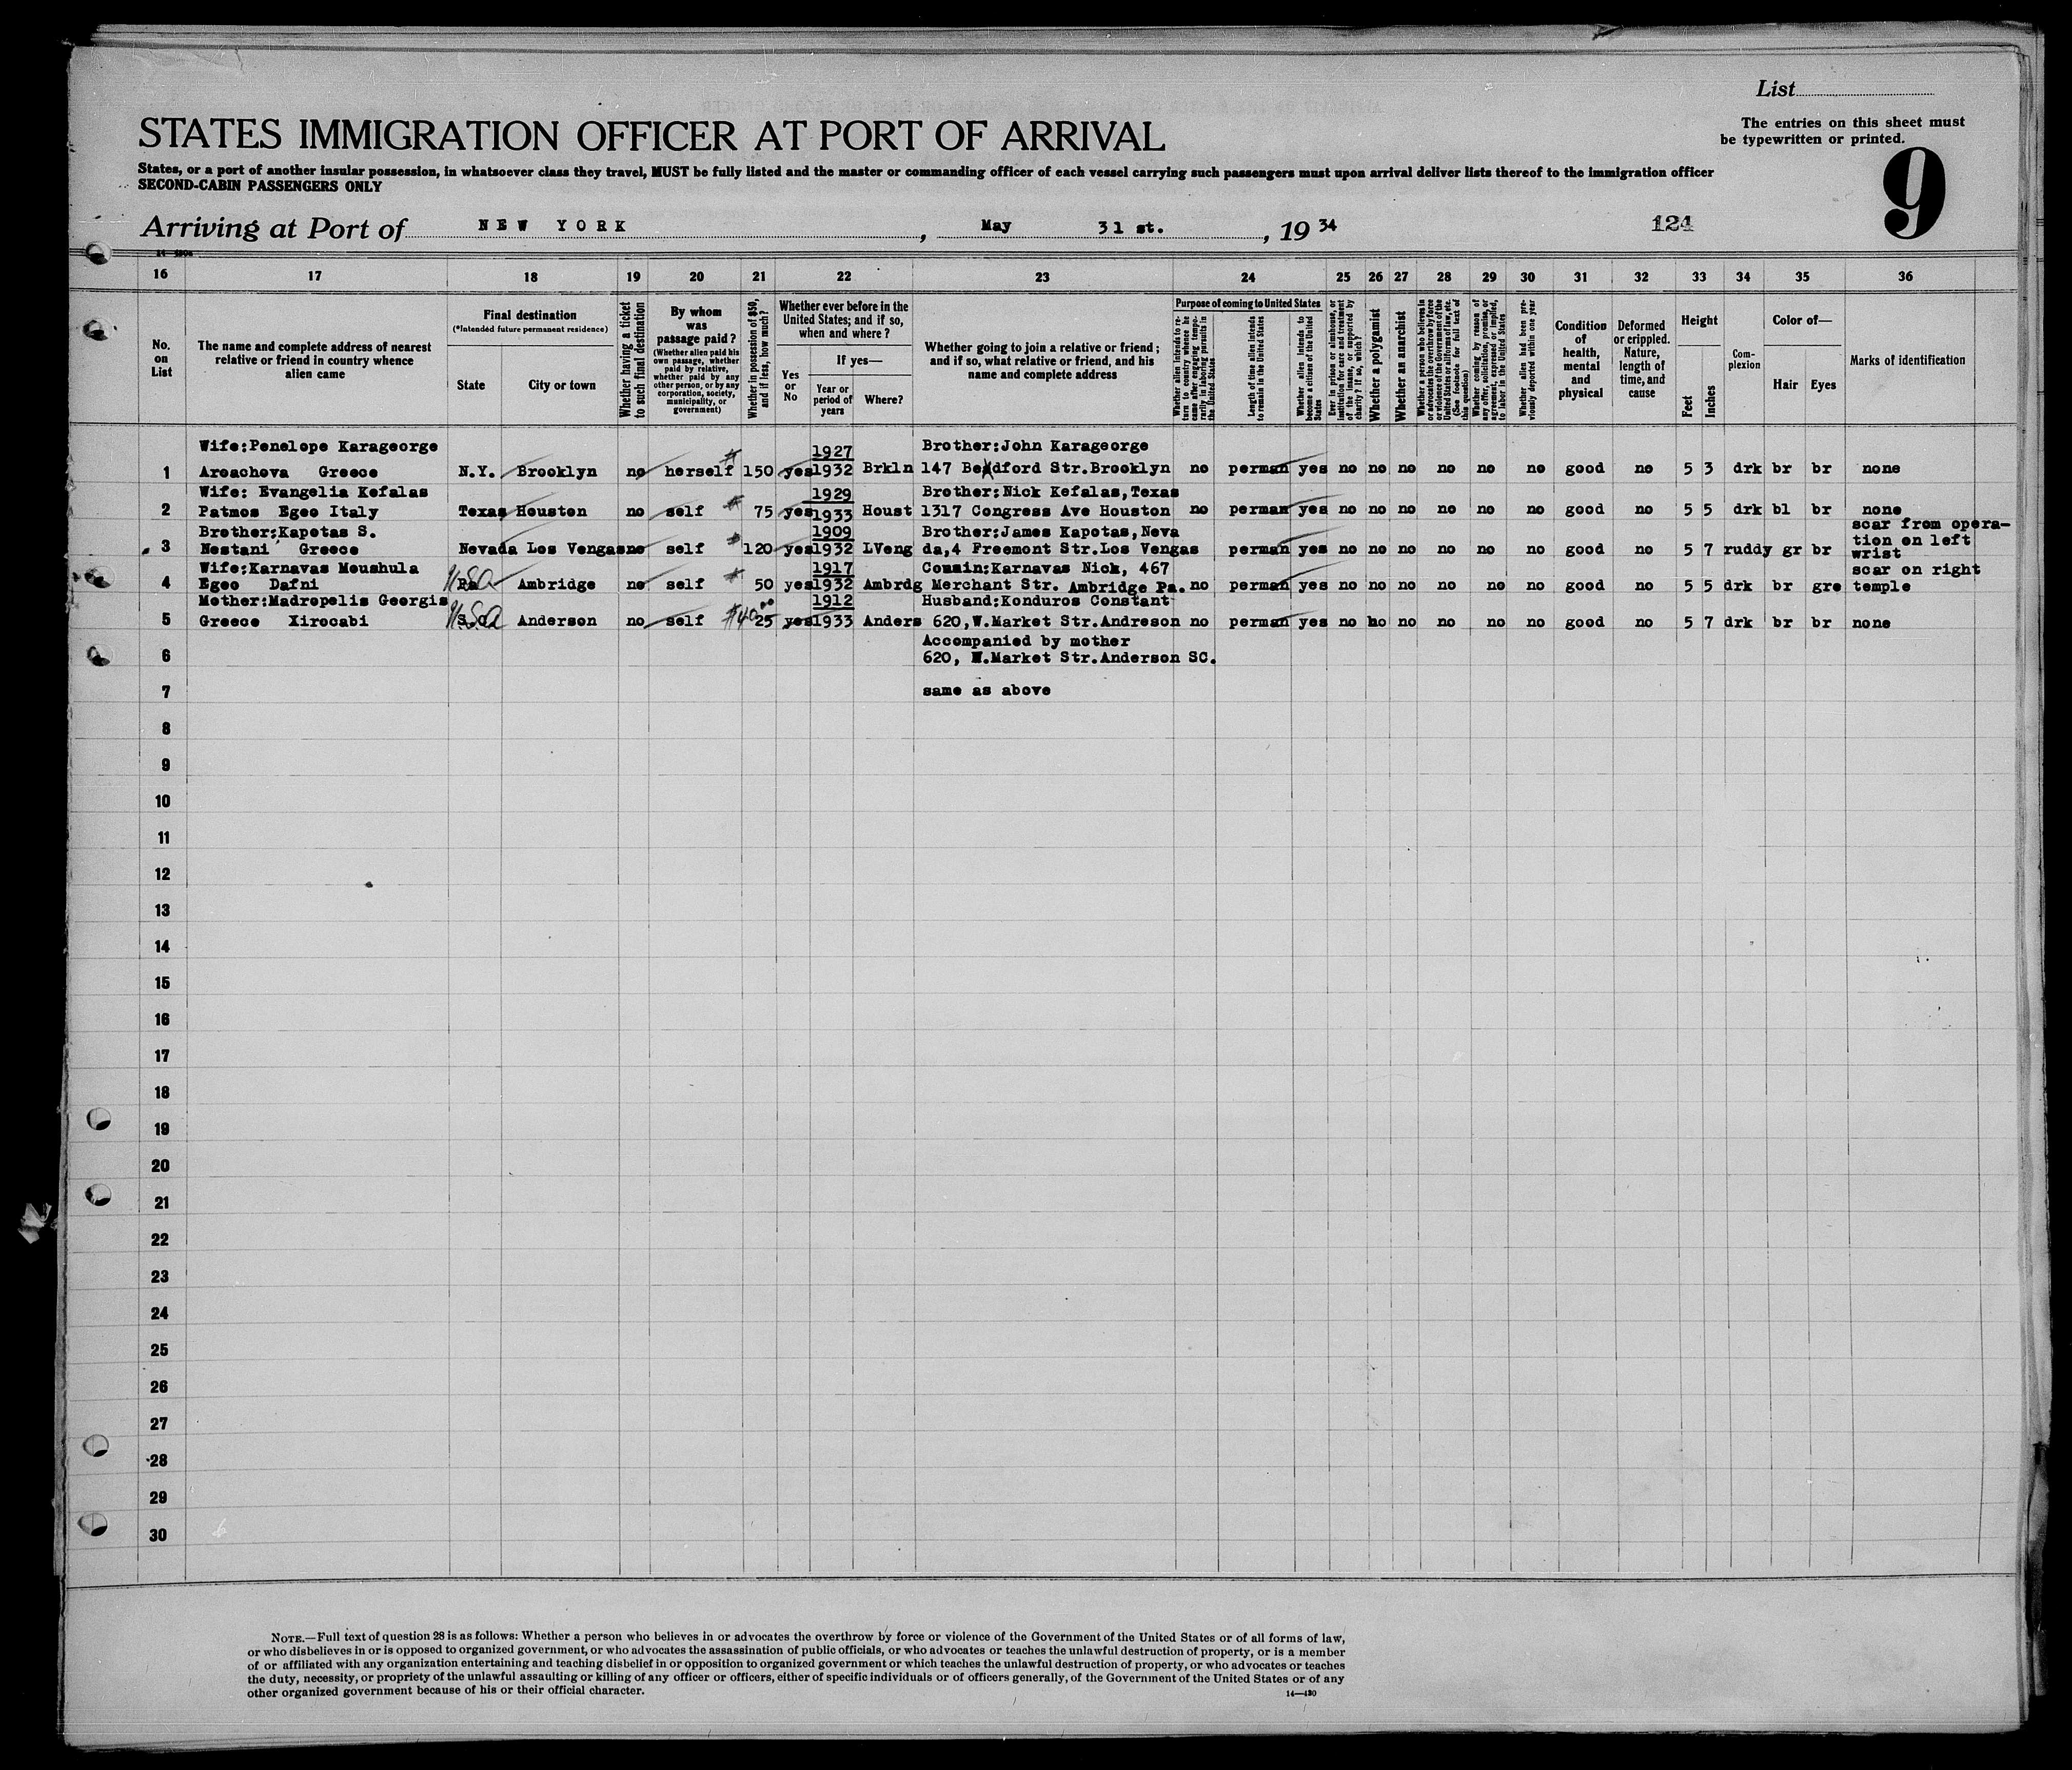 List
The entries on this sheet must
be typewritten or printed.
STATES IMMIGRATION OFFICER AT PORT OF ARRIVAL
9
States, or a port of another insular possession, in whatsoever class they travel, MUST be fully listed and the master or commanding officer of each vessel carrying such passengers must upon arrival deliver lists thereof to the immigration officer
SECOND-CABIN PASSENGERS ONLY
Arriving at Port of NEW YORK, May 31 st., 19 34
124
16 17 18 19 20 21 22 23 24 25 26 27 28 29 30 31 32 33 34 35 36
No. on List
The name and complete address of nearest relative or friend in country whence alien came
Final destination
(*Intended future permanent residence)
State
City or town
Whether having a ticket to such final destination
By whom was passage paid?
(Whether alien paid his own passage, whether paid by relative, whether paid by any other person, or by any corporation, society, municipality, or government)
Whether in possession of $50, and if less, how much?
Whether ever before in the United States; and if so, when and where?
Yes or No
If yes—
Year or period of years
Where?
Whether going to join a relative or friend; and if so, what relative or friend, and his name and complete address
Purpose of coming to United States
Whether alien intends to return to country whence he came after engaging temporarily in laboring pursuits in the United States
Length of time alien intends to remain in the United States
Whether alien intends to become a citizen of the United States
Ever in prison or almshouse, or institution for care and treatment of the insane, or supported by charity? If so, which?
Whether a polygamist
Whether an anarchist
Whether a person who believes in or advocates the overthrow by force or violence of the Government of the United States or all forms of law, etc. (See footnote for full text of this question)
Whether coming by reason of any offer, solicitation, promise, or agreement, expressed or implied, to labor in the United States
Whether alien had been previously deported within one year
Condition of health, mental and physical
Deformed or crippled. Nature, length of time, and cause
Height
Feet
Inches
Complexion
Color of—
Hair
Eyes
Marks of identification
Wife:Penelope Karageorge 1927 Brother:John Karageorge
1 Areacheva Greece N.Y. Brooklyn no herself 150 yes 1932 Brkln 147 Bedford Str.Brooklyn no perman yes no no no no no no good no 5 3 drk br br none
Wife: Evangelia Kefalas 1929 Brother:Nick Kefalas,Texas
2 Patmos Egeo Italy Texas Houston no self 75 yes 1933 Houst 1317 Congress Ave Houston no perman yes no no no no no no good no 5 5 drk bl br none
Brother:Kapotas S. 1909 Brother:James Kapotas,Neva scar from opera-
tion on left
3 Nestani Greece Nevada Los Vengas no self 120 yes 1932 LVeng da,4 Freemont Str.Los Vengas perman yes no no no no no no good no 5 7 ruddy gr br wrist
Wife:Karnavas Moushula 1917 Cousin:Karnavas Nick, 467 scar on right
4 Egeo Dafni Pa USA Ambridge no self 50 yes 1932 Ambrdg Merchant Str. Ambridge Pa. no perman yes no no no no no no good no 5 5 drk br gre temple
Mother:Madropolis Georgis 1912 Husband:Konduros Constant
5 Greece Xirocabi S.C USA Anderson no self $40.00 25 yes 1933 Anders 620,W.Market Str.Andreson no perman yes no no no no no no good no 5 7 drk br br none
Accompanied by mother
6 620, W.Market Str.Anderson SC.
7 same as above
8
9
10
11
12
13
14
15
16
17
18
19
20
21
22
23
24
25
26
27
28
29
30
NOTE.—Full text of question 28 is as follows: Whether a person who believes in or advocates the overthrow by force or violence of the Government of the United States or of all forms of law,
or who disbelieves in or is opposed to organized government, or who advocates the assassination of public officials, or who advocates or teaches the unlawful destruction of property, or is a member
of or affiliated with any organization entertaining and teaching disbelief in or opposition to organized government or which teaches the unlawful destruction of property, or who advocates or teaches
the duty, necessity, or propriety of the unlawful assaulting or killing of any officer or officers, either of specific individuals or of officers generally, of the Government of the United States or of any
other organized government because of his or their official character.
14—430